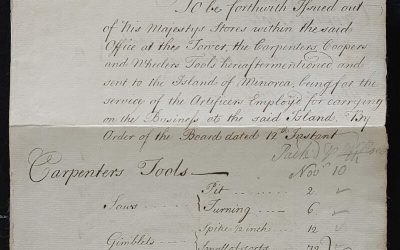 To be forthwith Issued out
of His Majestys Stores within the said
Office at the Tower, the Carpenters, Coopers
and Wheelers Tools hereaftermentioned and
sent to the Island of Minorca, being for the
service of the Artificers Employ'd for carrying
on the Business at the said Island. By
Order of the Board dated 12th Instant
Novr 10
Carpenters Tools
Saws
Pit 2
Turning 6
Spike 2 inch 12
Gimblets
Small of sorts 72